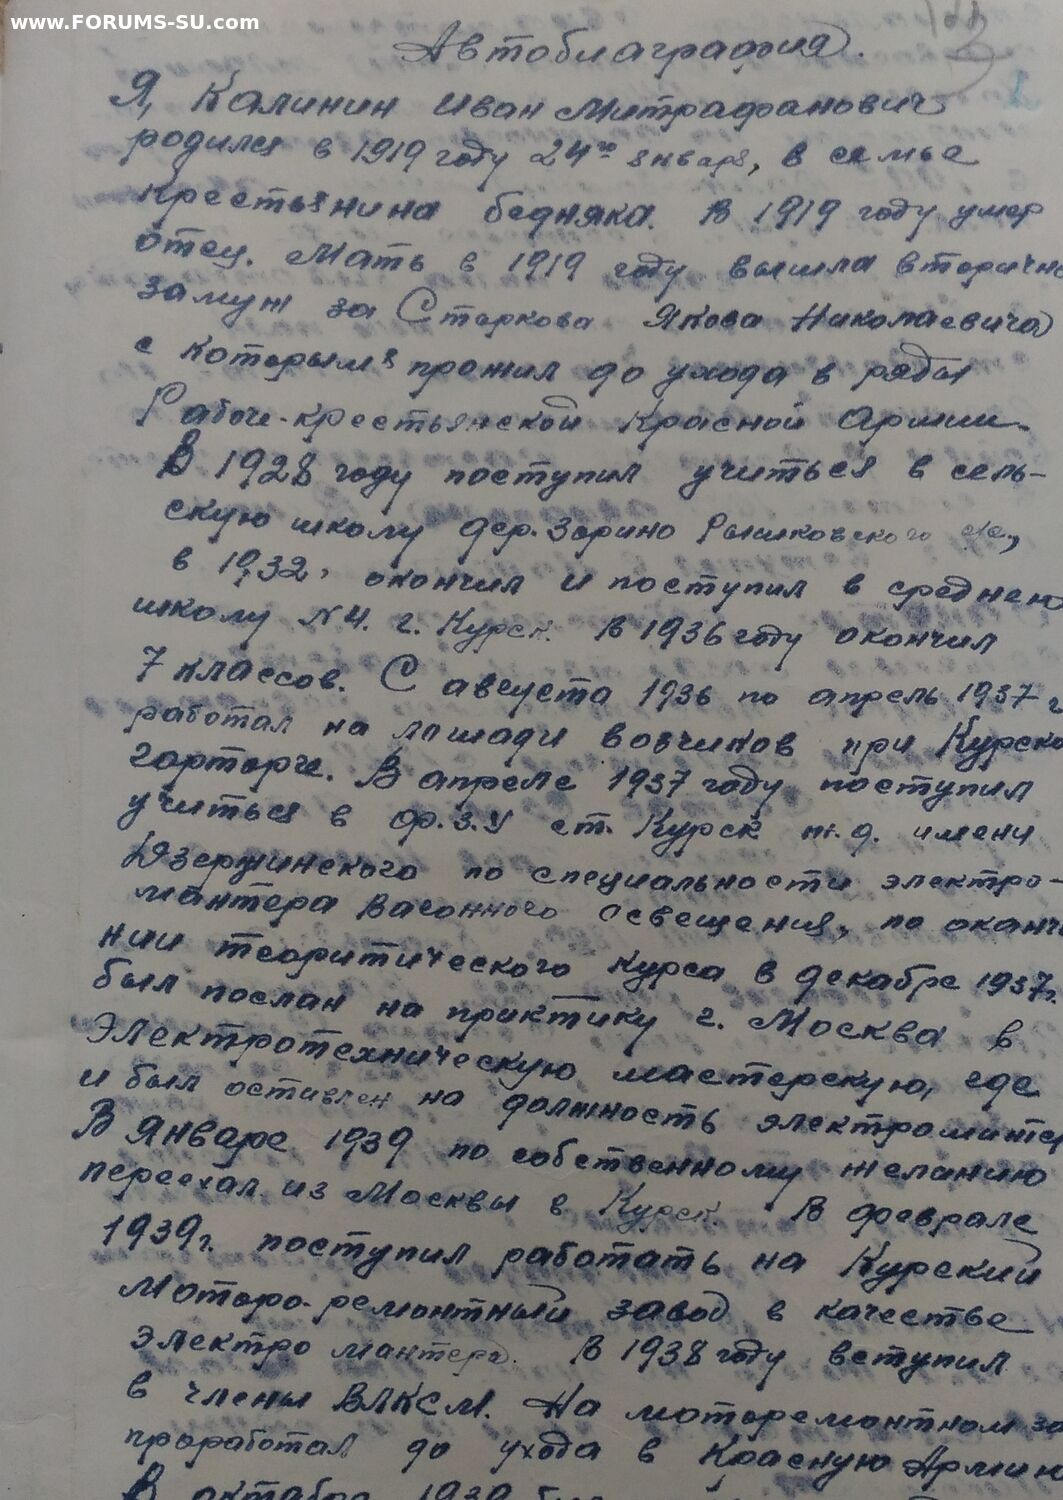 www.FORUMS-SU.com
Автобиаграфия.
Я, Калинин Иван Митрафанович
родился в 1919 году 24го января, в семье
крестьянина бедняка. В 1919 году умер
отец. Мать в 1919 году вышла вторично
замуж за Старкова Якова Николаевича
с которым я прожил до ухода в ряды
Рабоче-крестьянской Красной Армии.
В 1928 году поступил учиться в сель-
скую школу дер. Зорино Рышковского
в 1932, окончил и поступил в среднею
школу №4. г. Курск. В 1936 году окончил
7 классов. С августа 1936 по апрель 1937 г
работал на лошади вовчиков при Курско
гарторге. В апреле 1937 году поступил
учиться в ф.з.у ст. Курск ж.д. имени
Дзержинского по специальности электро-
мантера вагонного освещения, по оканча
нии теоритического курса в декабре 1937г.
был послан наприктику г. Москва в
Электротехническую мастерскую, где
и был оставлен на должность электромантер
В Январе 1939 по собственному желанию
переехал из Москвы в Курск. В феврале
1939г. поступил работать на Курский
Мотаро-ремонтный завод в качестве
электро мантера. В 1938 году вступил
в члены ВЛКСМ. На моторемонтном за
проработал до ухода в Красную Армию
В октябре 1939